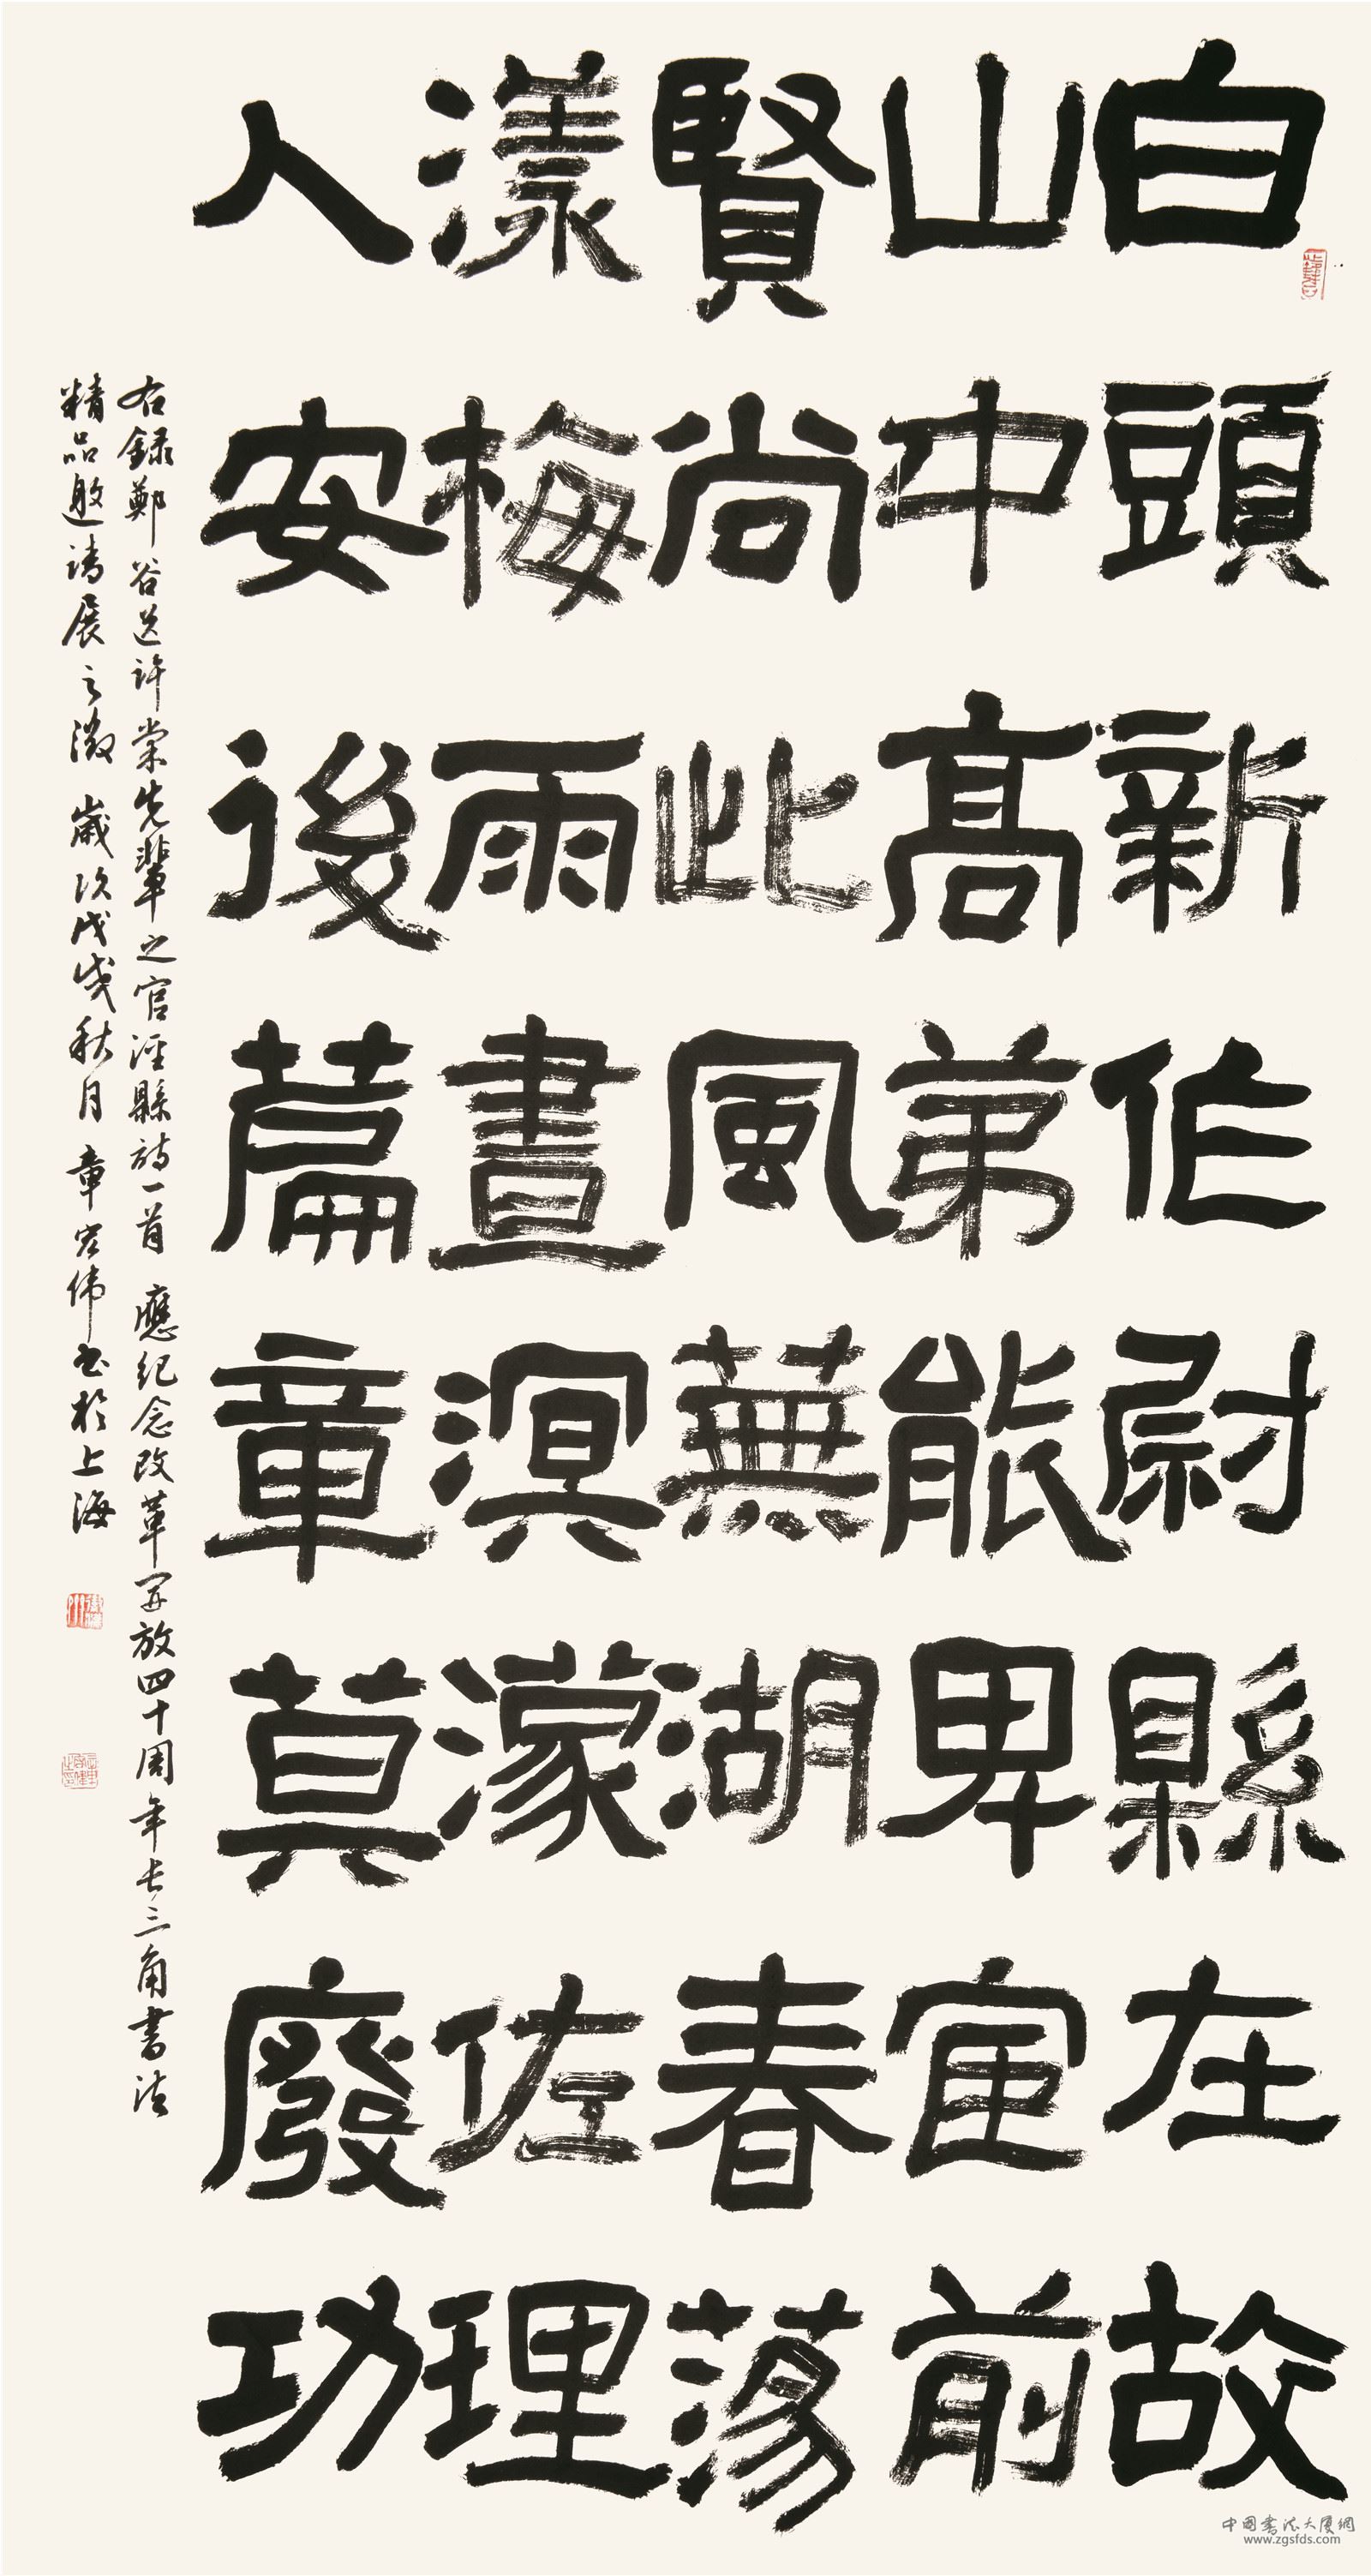 白頭新作尉縣在故
山中高第能卑宦前
賢尚此風蕪湖春蕩
漾梅雨晝溟濛佐理
人安後篇章莫廢功
右録鄭谷送許棠先輩之官涇縣詩一首 應紀念改革開放四十周年長三角書法
精品邀請展之徵 歲次戊戌秋月 章宏偉書於上海
中國書法大廈網
www.zgsfds.com